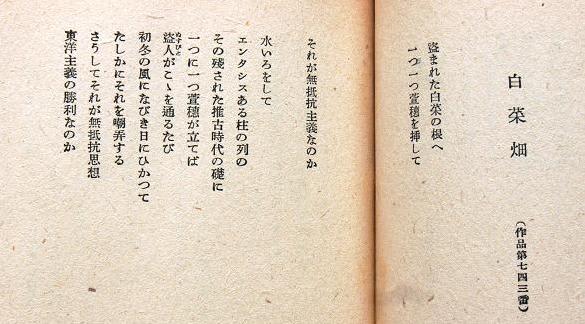 白菜畑
(作品第七四三番)
盗まれた白菜の根へ
一つ一つ萱穂を挿して
それが無抵抗主義なのか
水いろをして
エンタシスある柱の列の
その残された推古時代の礎に
一つに一つ萱穂が立てば
盗人がこゝを通るたび
ぬすびと
初冬の風になびき日にひかつて
たしかにそれを嘲弄する
さうしてそれが無抵抗思想
東洋主義の勝利なのか